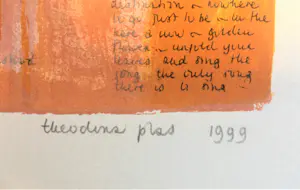 destination ~ nowhere
to go just to be ~ in the
here & now ~ golden
flower ~ unfold your
leaves and sing the
song the only song
there is to sing
theodina plas 1999